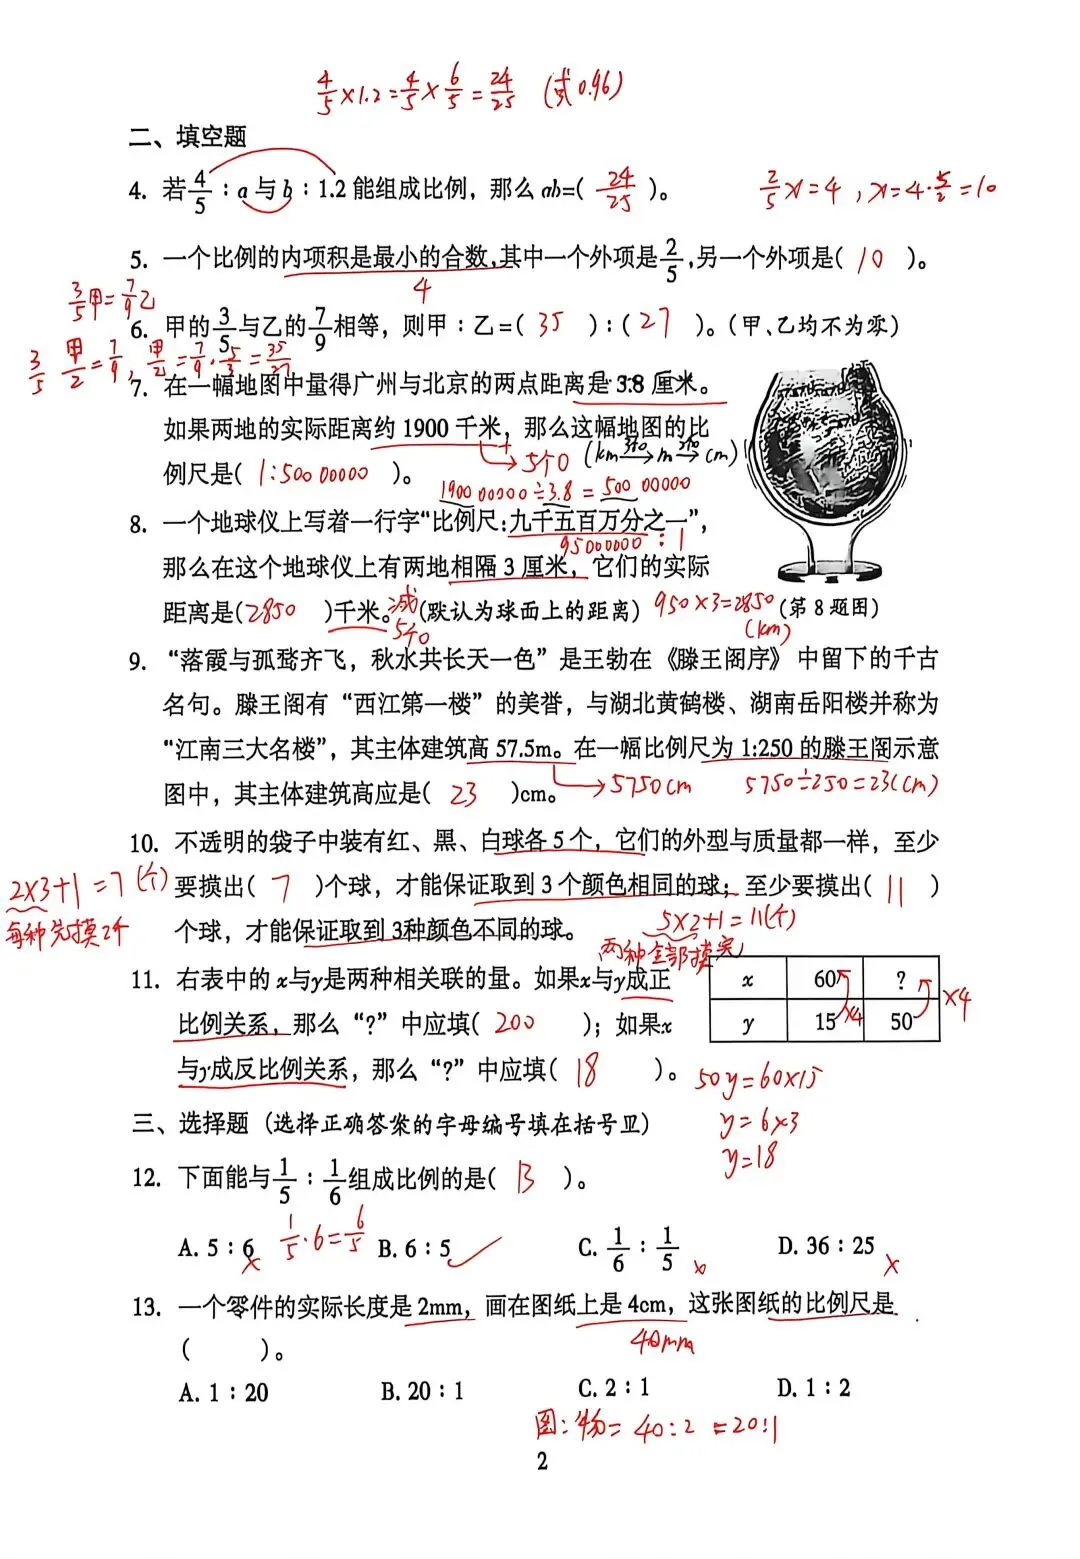 4/5×1.2=4/5×6/5=24/25 (或0.96)
二、填空题
4. 若4/5：a与b：1.2能组成比例，那么ab=( 24/25 )。
2/5x=4，x=4·5/2=10
5. 一个比例的内项积是最小的合数,其中一个外项是2/5,另一个外项是( 10 )。
4
3/5甲=7/9乙
6. 甲的3/5与乙的7/9相等，则甲：乙=( 35 )：( 27 )。(甲、乙均不为零)
3/5 甲/乙=7/9, 甲/乙=7/9·5/3=35/27
7. 在一幅地图中量得广州与北京的两点距离是3.8厘米。
如果两地的实际距离约1900千米，那么这幅地图的比
→5个0 (km→m→cm)
例尺是( 1:50000000 )。
190000000÷3.8=50000000
8. 一个地球仪上写着一行字“比例尺:九千五百万分之一”，
95000000：1
那么在这个地球仪上有两地相隔3厘米，它们的实际
距离是(2850 )千米。(默认为球面上的距离)
减5个0
950×3=2850
(km)
(第8题图)
9. “落霞与孤骛齐飞，秋水共长天一色”是王勃在《滕王阁序》中留下的千古
名句。滕王阁有“西江第一楼”的美誉，与湖北黄鹤楼、湖南岳阳楼并称为
“江南三大名楼”，其主体建筑高57.5m。在一幅比例尺为1:250的滕王阁示意
图中，其主体建筑高应是( 23 )cm。
→5750cm 5750÷250=23(cm)
10. 不透明的袋子中装有红、黑、白球各5个，它们的外型与质量都一样，至少
2×3+1=7(个)
要摸出( 7 )个球，才能保证取到3个颜色相同的球；至少要摸出( 11 )
每种先摸2个
5×2+1=11(个)
个球，才能保证取到3种颜色不同的球。
两种全部摸完
11. 右表中的x与y是两种相关联的量。如果x与y成正
比例关系，那么“?”中应填( 200 )；如果x
与y成反比例关系，那么“?”中应填( 18 )。
x 60 ?
y 15 50
×4 ×4
50y=60×15
y=6×3
y=18
三、选择题 (选择正确答案的字母编号填在括号里)
12. 下面能与1/5：1/6组成比例的是( B )。
1/5·6=6/5
A. 5：6 B. 6：5 C. 1/6：1/5 D. 36：25
13. 一个零件的实际长度是2mm，画在图纸上是4cm，这张图纸的比例尺是
40mm
( )。
A. 1：20 B. 20：1 C. 2：1 D. 1：2
图:物=40:2=20:1
2